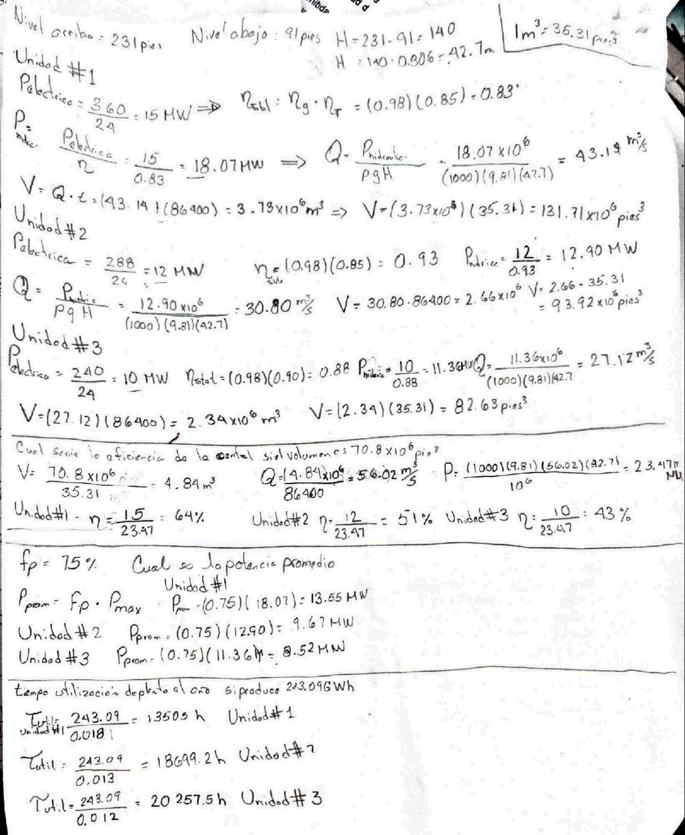 Nivel arriba = 231 pies Nivel abajo : 91 pies H = 231 - 91 = 140
1m³ = 35.31 pies³
H = 140 · 0.306 = 42.7m
Unidad #1
Pelectrica = 360/24 = 15 MW ⇒ ηtotal : ηg · ηT = (0.98)(0.85) = 0.83
P = Pelectrica/η = 15/0.83 = 18.07 MW ⇒ Q = Phidraulic/ρgH = 18.07 x10⁶/(1000)(9.81)(42.7) = 43.14 m³/s
V = Q · t = (43.14)(86400) = 3.73x10⁶ m³ ⇒ V = (3.73x10⁶)(35.31) = 131.71x10⁶ pies³
Unidad #2
Pelectrica = 288/24 = 12 MW η = (0.98)(0.85) = 0.93 Phidrica = 12/0.93 = 12.90 MW
Q = Phidric/ρgH = 12.90x10⁶/(1000)(9.81)(42.7) = 30.80 m³/s V = 30.80 · 86400 = 2.66x10⁶ V = 2.66 · 35.31 = 93.92x10⁶ pies³
Unidad #3
Pelectrica = 240/24 = 10 MW ηtotal = (0.98)(0.90) = 0.88 = 10/0.88 = 11.36 MW Q = 11.36x10⁶/(1000)(9.81)(42.7 = 27.12 m³/s
V = (27.12)(86400) = 2.34x10⁶ m³ V = (2.34)(35.31) = 82.63 pies³
Cual seria la eficiencia de la central si el volumen es 70.8x10⁶ pie³
V = 70.8x10⁶/35.31 = 4.84 m³ Q = (4.84x10⁶/86400 = 56.02 m³/s P = (1000)(9.81)(56.02)(42.7)/10⁶ = 23.47 MW
Unidad #1 - η = 15/23.47 = 64% Unidad #2 η = 12/23.47 = 51% Unidad #3 η = 10/23.47 = 43%
fp = 75% Cual es la potencia promedio
Unidad #1
Pprom = Fp · Pmax Prom = (0.75)(18.07) = 13.55 MW
Unidad #2 Pprom = (0.75)(12.90) = 9.67 MW
Unidad #3 Pprom = (0.75)(11.36) = 8.52 MW
tiempo utilizacion de planta al año si produce 243.09 GWh
Tutil = 243.09/0.018 = 13505 h Unidad #1
Tutil = 243.09/0.013 = 18699.2 h Unidad #2
Tutil = 243.09/0.012 = 20257.5 h Unidad #3